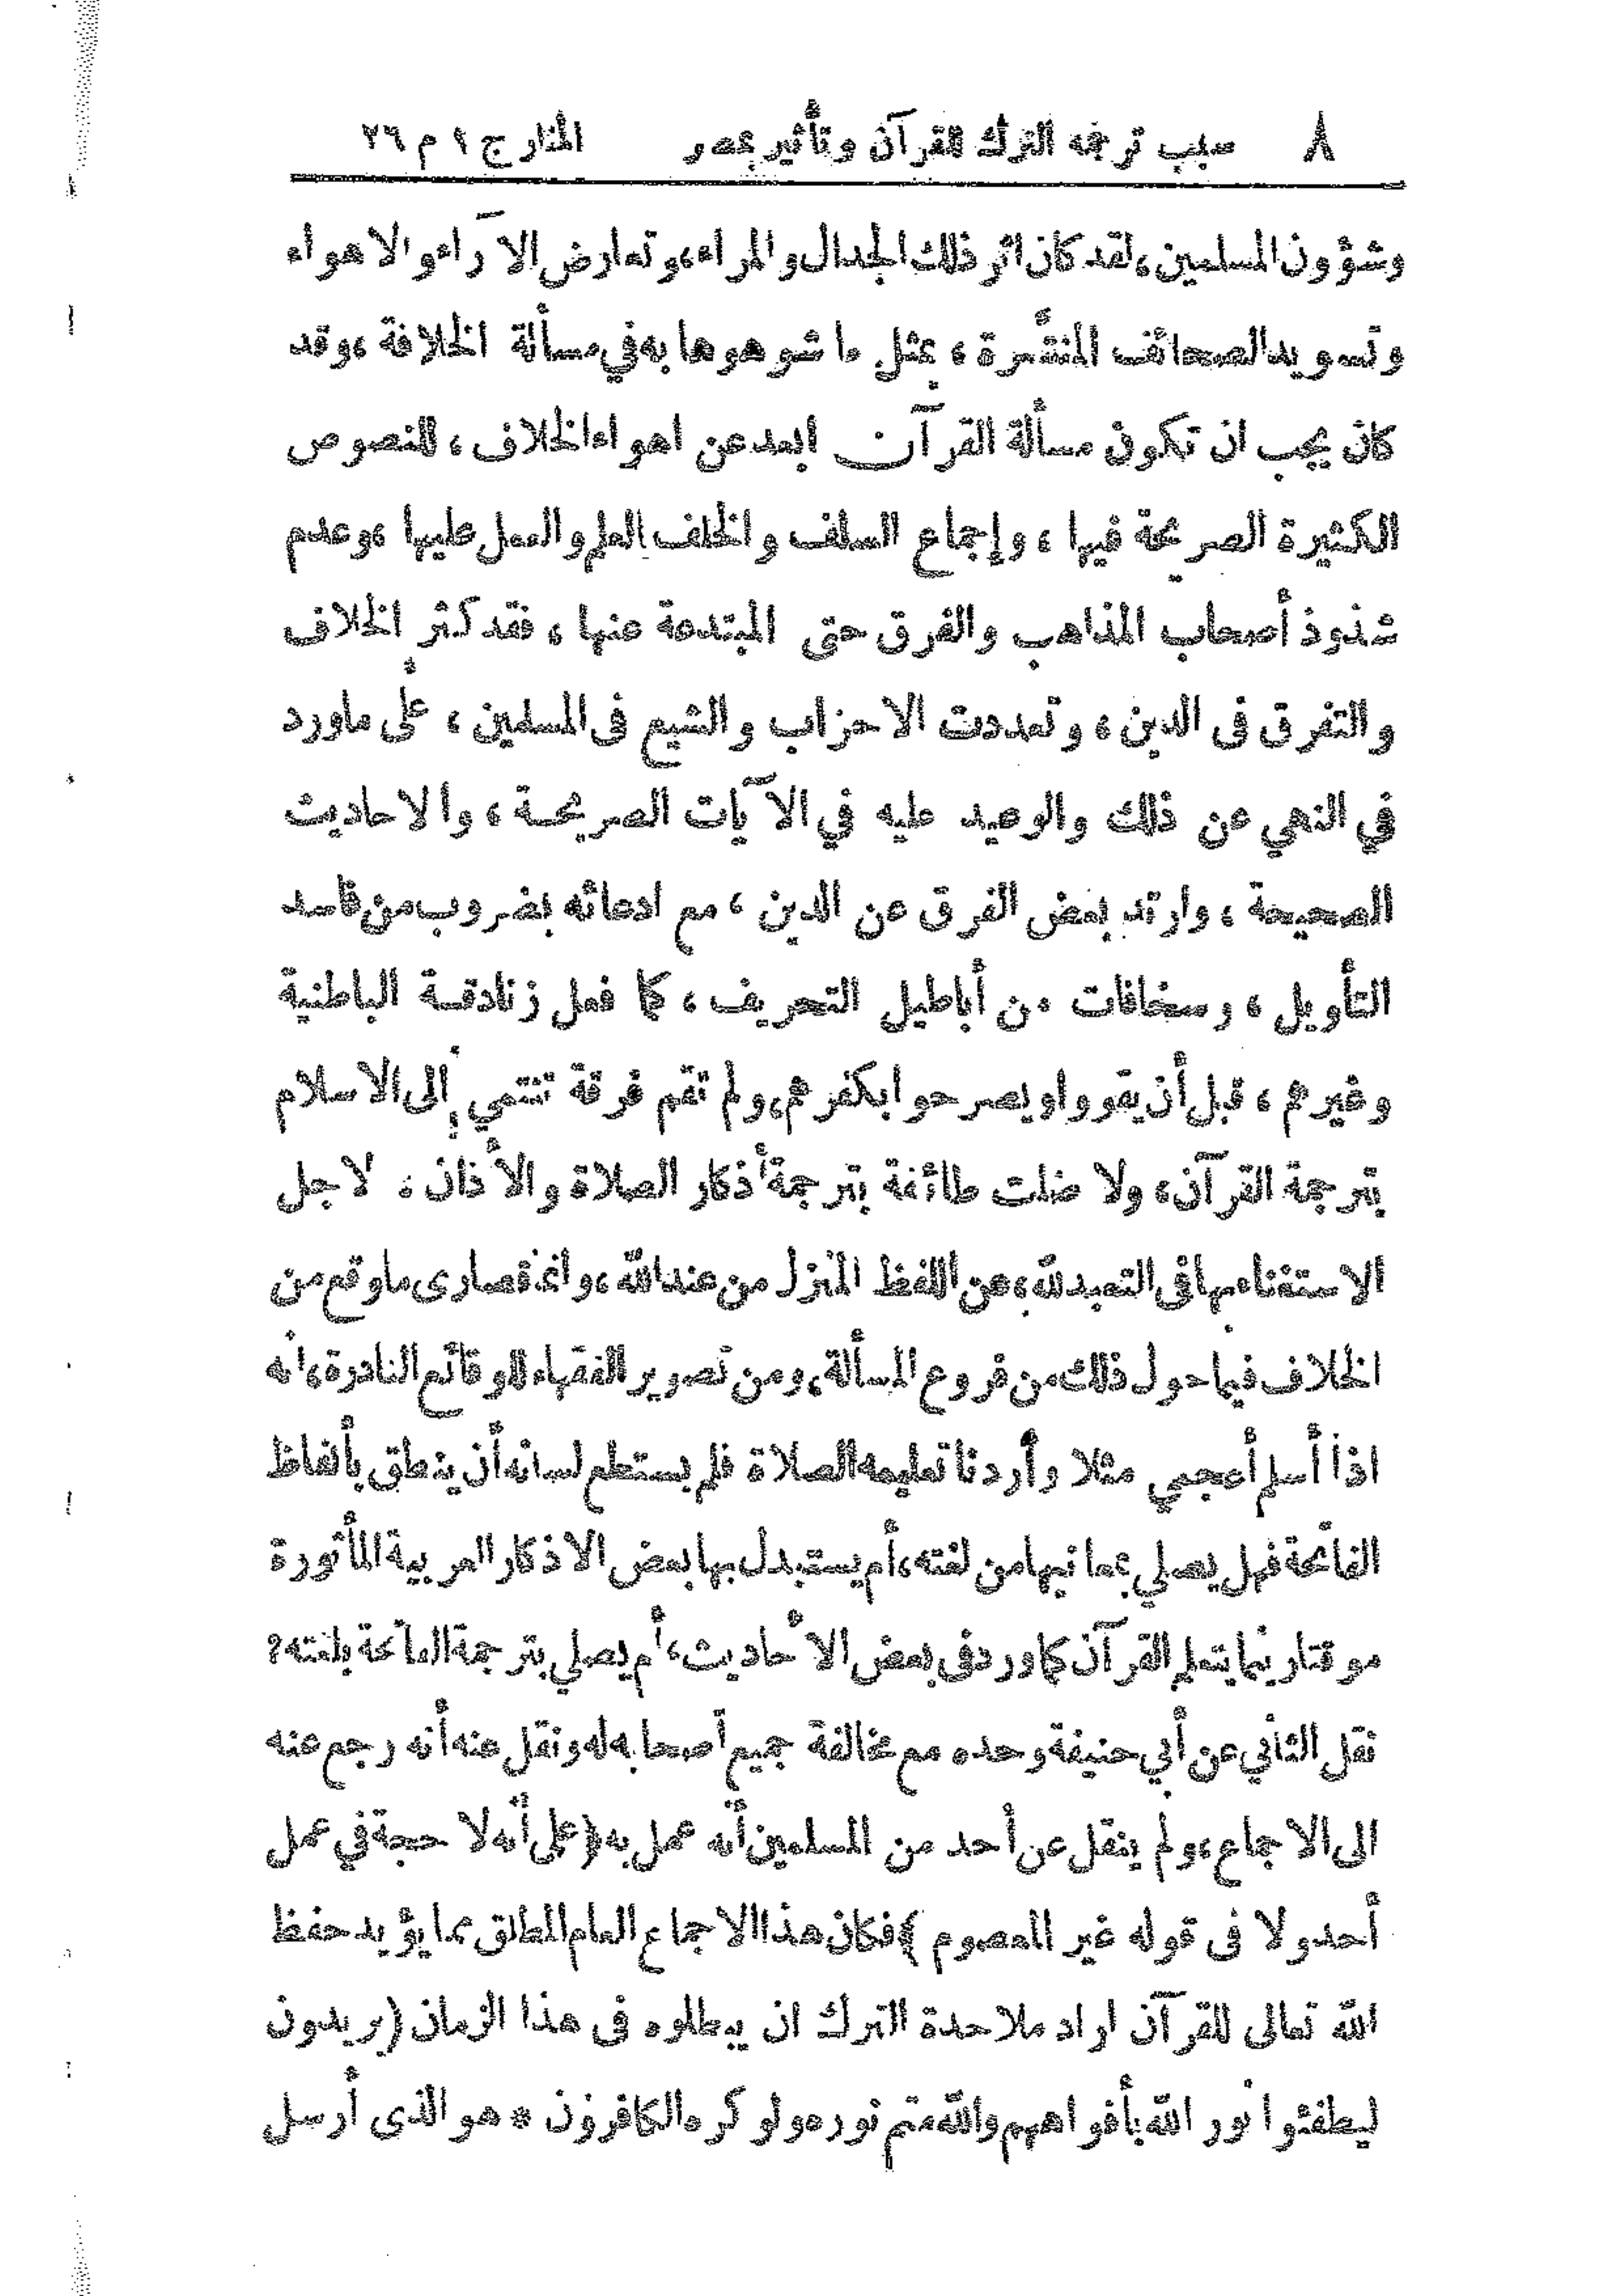 ٨ سبب ترجمة الترك للقرآن وتأثير بمصر المنار ج ١ م ٢٦
وشؤون المسلمين، لقد كان اثر ذلك الجدال والمراء، وتعارض الآراء والاهواء
وتسويد الصحائف المنشرة، بمثل ما شوهوها به في مسألة الخلافة، وقد
كان يجب ان تكون مسألة القرآن ابعد عن اهواء الخلاف، للنصوص
الكثيرة الصريحة فيها، وإجماع السلف والخلف العلم والعمل عليها، وعدم
شذوذ أصحاب المذاهب والفرق حتى المبتدعة عنها، فقد كثر الخلاف
والتفرق فى الدين، وتعددت الاحزاب والشيع فى المسلمين، على ماورد
في النهي عن ذلك والوعيد عليه في الآيات الصريحة، والاحاديث
الصحيحة، وارتد بعض الفرق عن الدين، مع ادعائه بضروب من فاسد
التأويل، وسخافات من أباطيل التحريف، كما فعل زنادقة الباطنية
وغيرهم، قبل أن يقووا ويصرحوا بكفرهم، ولم تقم فرقة تنتمي إلى الاسلام
بترجمة القرآن، ولا ضلت طائفة بترجمة أذكار الصلاة والأذان، لاجل
الاستغناء بها فى التعبد لله، عن اللفظ المنزل من عند الله، وانما قصارى ما وقع من
الخلاف فيما حول ذلك من فروع المسألة، ومن تصوير الفقهاء للوقائع النادرة، انه
اذا أسلم أعجمي مثلا وأردنا تعليمه الصلاة فلم يستطع لسانه أن ينطق بألفاظ
الفاتحة فهل يصلي بمعانيها من لغته، أم يستبدل بها بعض الاذكار العربية المأثورة
موقتا ريثما يتعلم القرآن كما ورد فى بعض الأحاديث، أم يصلي بترجمة الفاتحة بلغته؟
نقل الثاني عن أبي حنيفة وحده مع مخالفة جميع أصحابه له ونقل عنه أنه رجع عنه
الى الاجماع، ولم ينقل عن أحد من المسلمين أنه عمل به (على أنه لا حجة في عمل
أحد ولا فى قوله غير المعصوم) فكان هذا الاجماع العام المطلق مما يؤيد حفظ
الله تعالى للقرآن اراد ملاحدة الترك ان يبطلوه فى هذا الزمان (يريدون
ليطفئوا نور الله بأفواههم والله متم نوره ولو كره الكافرون * هو الذى أرسل